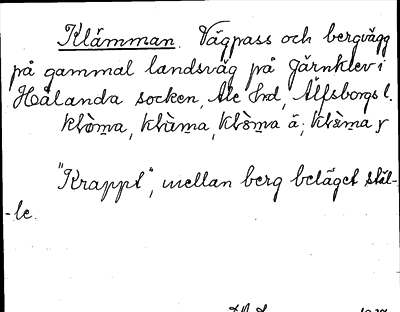 Klämman. Vägpass och bergvägg
på gammal landsväg på Järnklev i
Hålanda socken, Ale Hrd, Älfsborgs l.
"Krappt", mellan berg beläget stäl-
-le.